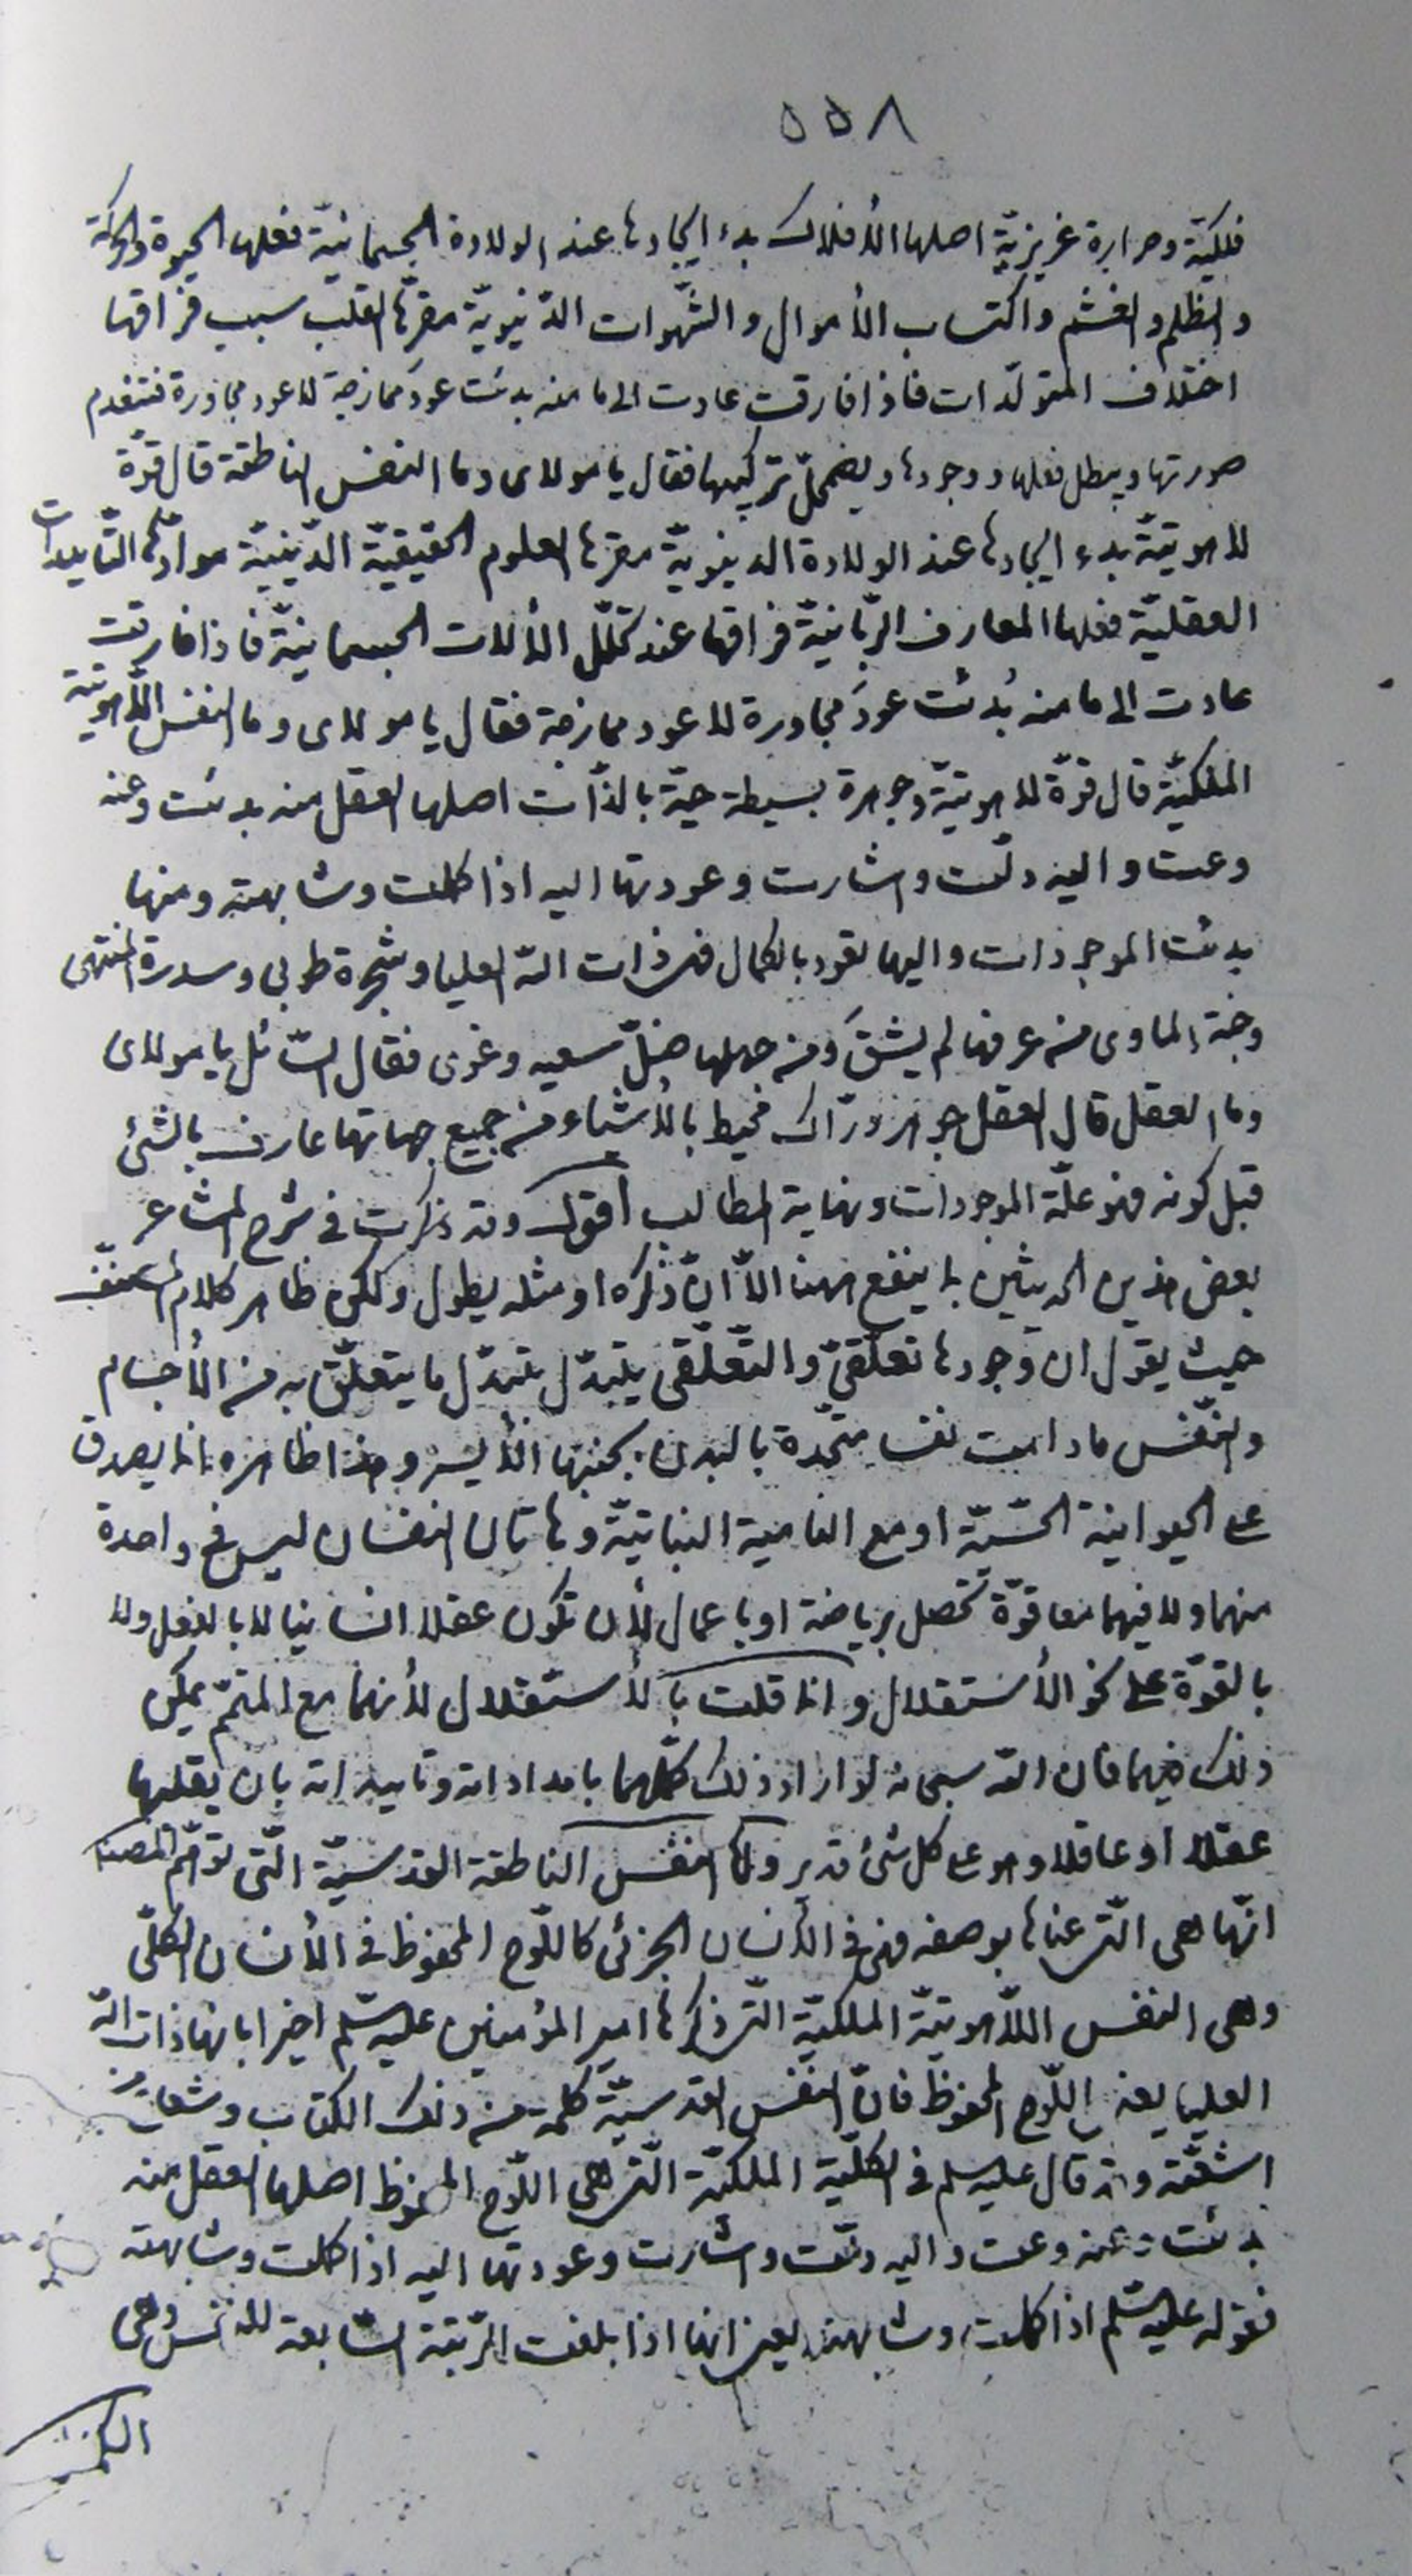 ٥٥٨
فلكيّة وحرارة غريزيّة اصلها الأفلاك بدء ايجادها عند الولادة الجسمانيّة فعلها الحيوة والحركة
والظلم والغشم واكتساب الأموال والشّهوات الدّنيويّة مقرّها القلب سبب فراقها
اختلاف المتولّدات فاذا فارقت عادت الى ما منه بدئت عودَ ممازجة لا عود مجاورة فتنعدم
صورتها ويبطل فعلها ووجودها ويضمحلّ تركيبها فقال يا مولاى وما النفس الناطقة قال قوّة
لاهوتيّة بدء ايجادها عند الولادة الدنيويّة مقرها العلوم الحقيقيّة الدّينيّة موادّها التّأييدات
العقليّة فعلها المعارف الرّبّانيّة فراقها عند تحلّل الألات الجسمانيّة فاذا فارقت
عادت الى ما منه بُدئت عودَ مجاورة لا عود ممازجة فقال يا مولاى وما النفس اللّاهوتيّة
الملكيّة قال قوّة لاهوتيّة وجوهرة بسيطة حيّة بالذّات اصلها العقل منه بدئت وعنه
وعت واليه دلّت واشارت وعودتها اليه اذا كملت وشابهته ومنها
بدئت الموجودات واليها تعود بالكمال فهى ذات اللّه العليا وشجرة طوبى وسدرة المنتهى
وجنة المأوى من عرفها لم يشقَ ومن جهلها ضلّ سعيه وغوى فقال السّائل يا مولاى
وما العقل قال العقل جوهر درّاك محيط بالأشياء من جميع جهاتها عارف بالشئ
قبل كونه فهو علّة الموجودات ونهاية المطالب أقول وقد ذكرت فى شرح المشاعر
بعض هذين الحديثين ما ينفع ههنا الّا انّ ذكره او مثله يطول ولكن ظاهر كلام المصنّف
حيث يقول ان وجودها تعلّقىّ والتّعلّقى يتبدّل بتبدّل ما يتعلّق به من الأجسام
والنّفس ما دامت نفسا متّحدة بالبدن بجنبها الأيسر وهذا ظاهره انما يصدق
على الحيوانية الحسّيّة او مع النامية النباتيّة وهاتان النفسان ليس فى واحدة
منهما ولا فيهما معا قوّة تحصل برياضة او باعمال لأن تكون عقلا انسانيا لا بالفعل ولا
بالقوّة على نحو الأستقلال وانما قلت بالأستقلال لأنهما مع المتمّم يمكن
ذلك فيهما فان اللّه سبحانه لو اراد ذلك كمّلهما بامداداته وتاييداته بان يقلبها
عقلا او عاقلا وهو على كل شئ قدير وامّا النفس الناطقة القدسيّة الّتى توهّم المصنف
انّها هى الّتى عناها بوصفه فهى فى الأنسان الجزئى كاللّوح المحفوظ فى الأنسان الكلّى
وهى النفس اللّاهوتيّة الملكيّة الّتى ذكرها امير المؤمنين عليه السّلم اخيرا بانها ذات اللّه
العليا يعنى اللّوح المحفوظ فانّ النفس القدسيّة كلمة من ذلك الكتاب وشعاع من
اشعّته وقد قال عليه السلم فى الكلّيّة الملكيّة الّتى هى اللّوح المحفوظ اصلها العقل منه
بدئت وعنه وعت واليه دلّت واشارت وعودتها اليه اذا كملت وشابهته
فقوله عليه السّلم اذا كملت وشابهته يعنى انها اذا بلغت الرّتبة السّابعة للنفس وهى